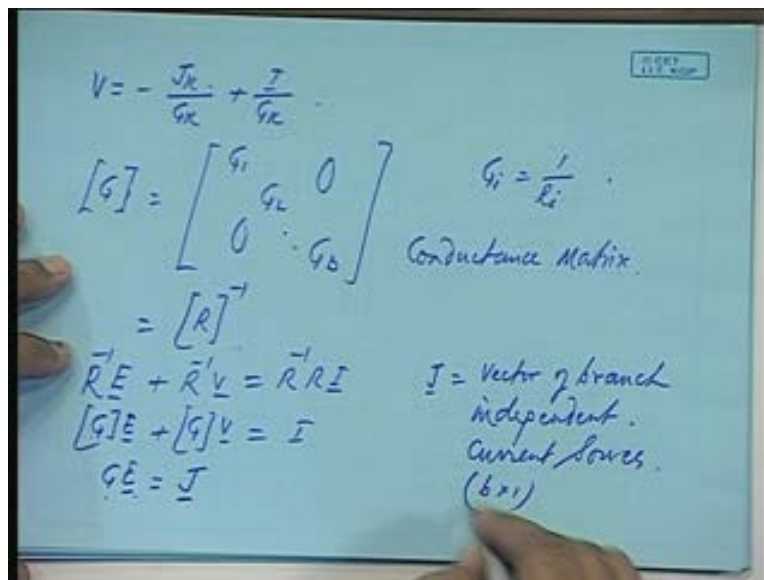 V = - Jk/Gk + I/Gk
[G] = [ G1 0
G2
0 ⋱ Gb ]
Gi = 1/Ri .
Conductance Matrix.
= [R]⁻¹
R⁻¹ E + R⁻¹ V = R⁻¹ R I
[G] E + [G] V = I
G E = J
J = Vector of branch
independent.
Current Sources.
(b×1)